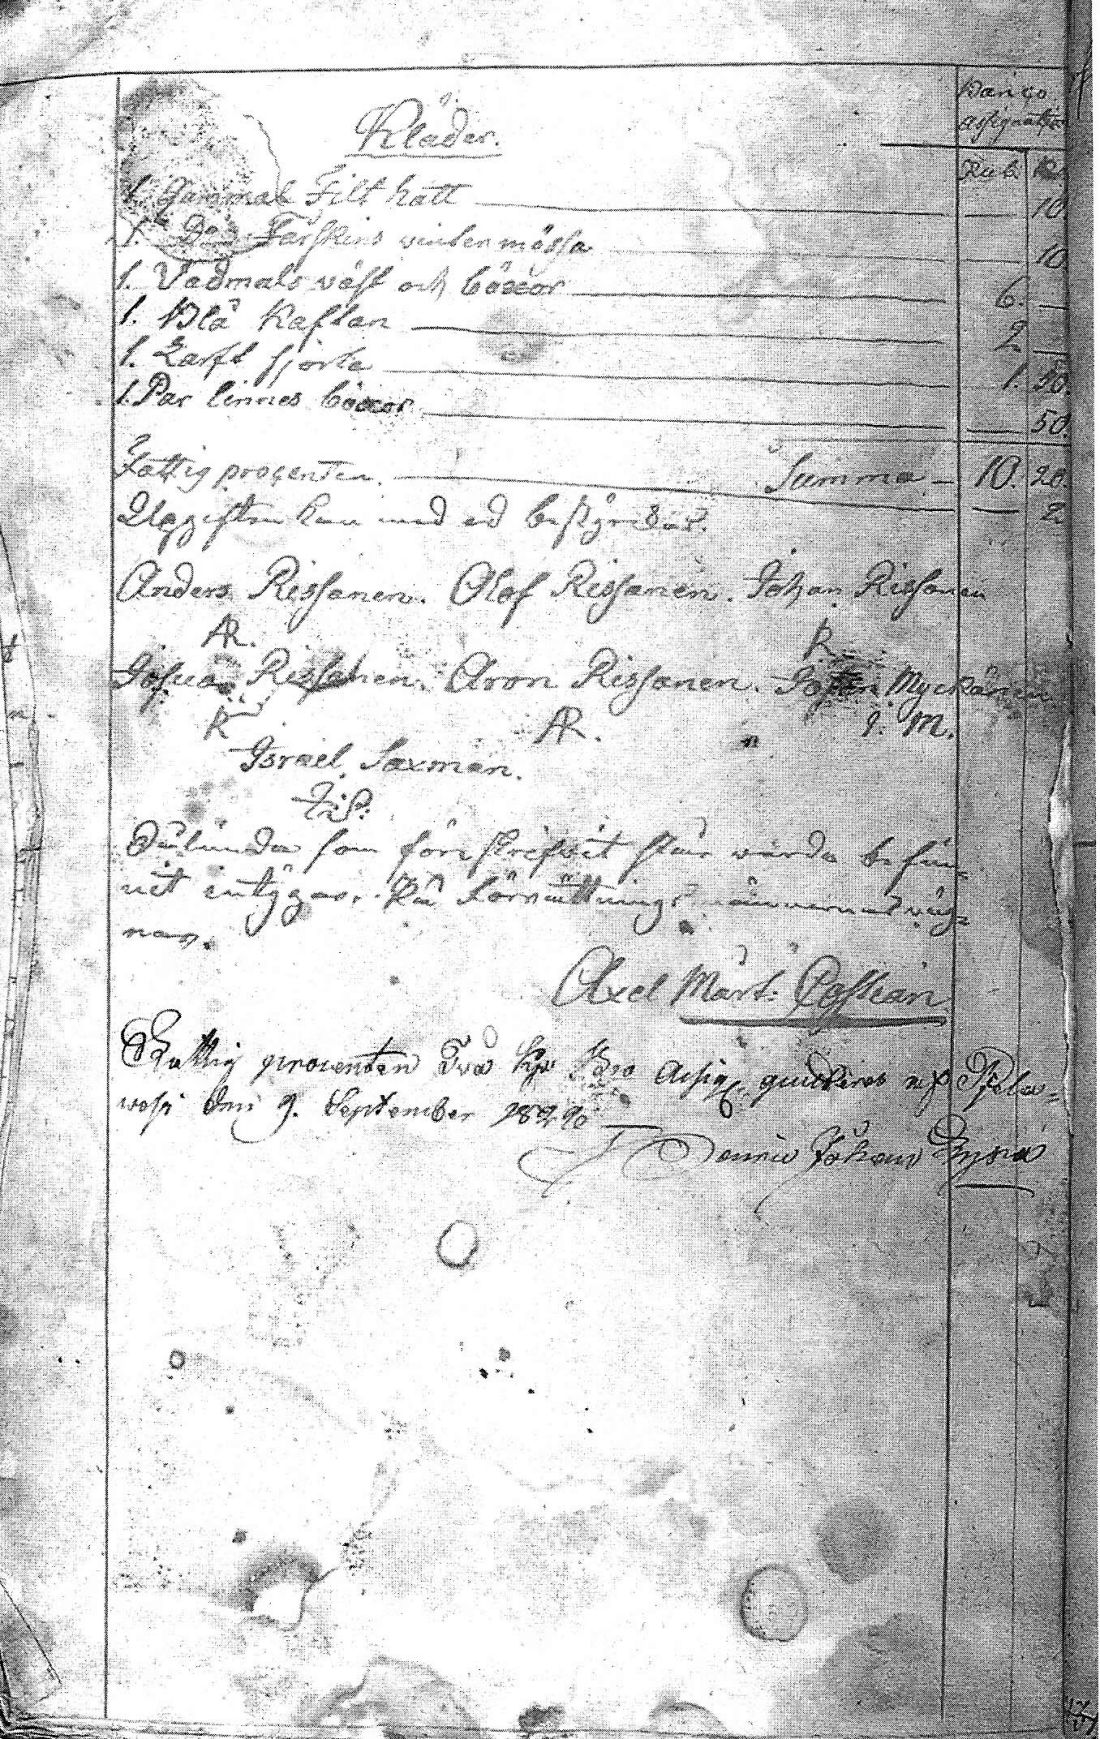 Banco
assignation
Kläder. Rub. K.
1. Gammal Filt hatt 10.
1. Do Fårskins vinter mössa 10.
1. Vadmals väst och böxor 6.
1. Blå Kaftan 2
1. Larft skjorta 1. 50.
1. Par linnes böxor 50.
Fattig procenten. Summa 10. 20.
Uppgiften kan med ed bestyrckas. 2
Anders Rissanen. Olof Rissanen. Johan Rissanen
AR. R
Josua Rissanen. Aron Rissanen. Johan Myckänen
R AR. J. M.
Israel Saxman.
J:S:
Sålunda som föreskrifvit står wärda befun=
nit intygar. På Förrättnings männernas väg=
nar.
Axel Märt:
Fattig procenten Två Kop Bco Assig qvitteras
den 9. September
Johan